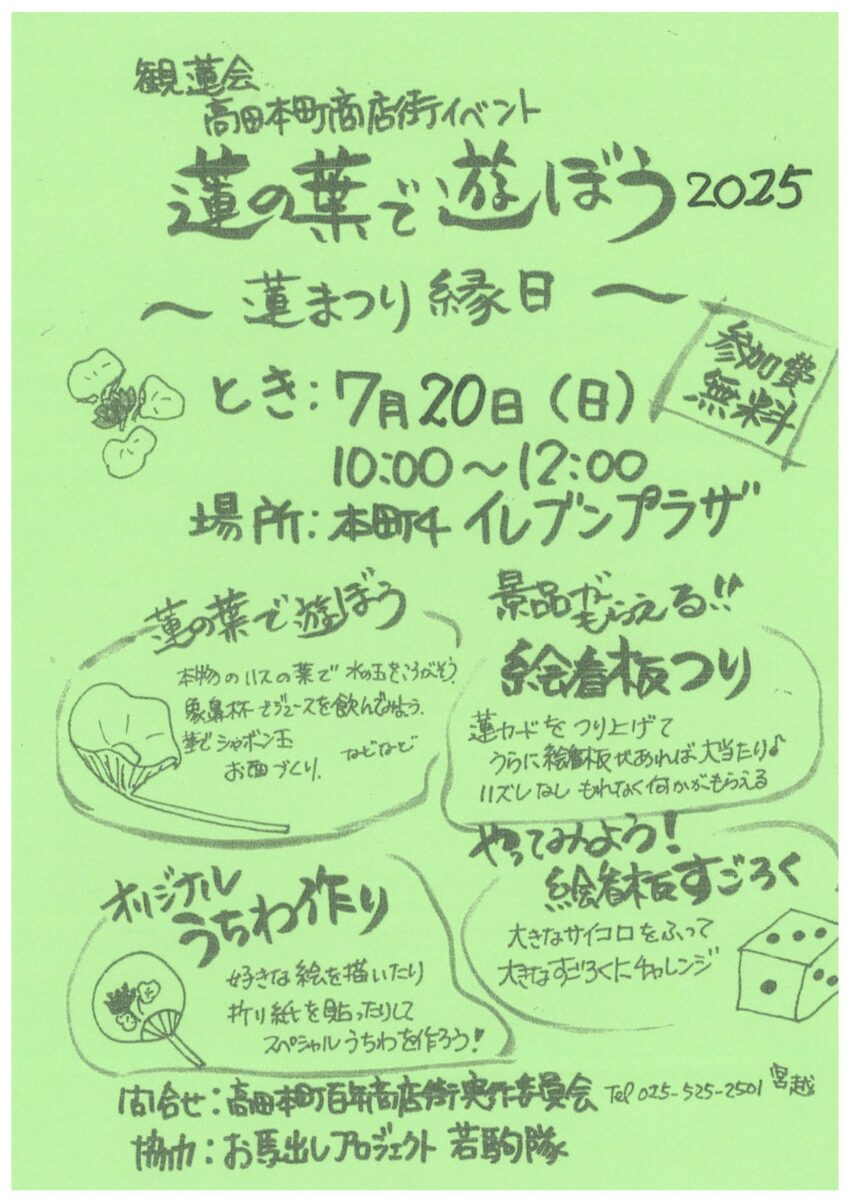 観蓮会
高田本町商店街イベント
蓮の葉で遊ぼう2025
～蓮まつり縁日～
参加費
無料
とき：7月20日（日）
10:00～12:00
場所：本町4 イレブンプラザ
蓮の葉で遊ぼう
本物のハスの葉で 水の玉をころがそう.
象鼻杯でジュースを飲んでみよう.
茎でシャボン玉
お面づくり. などなど
景品がもらえる!!
絵看板つり
蓮カードをつり上げて
うらに絵看板があれば大当たり♪
ハズレなし もれなく何かがもらえる
オリジナル
うちわ作り
好きな絵を描いたり
折り紙を貼ったりして
スペシャルうちわを作ろう!
やってみよう!
絵看板すごろく
大きなサイコロをふって
大きなすごろくにチャレンジ
問合せ：高田本町百年商店街実行委員会 Tel 025-525-2501 宮越
協力：お馬出しプロジェクト 若駒隊